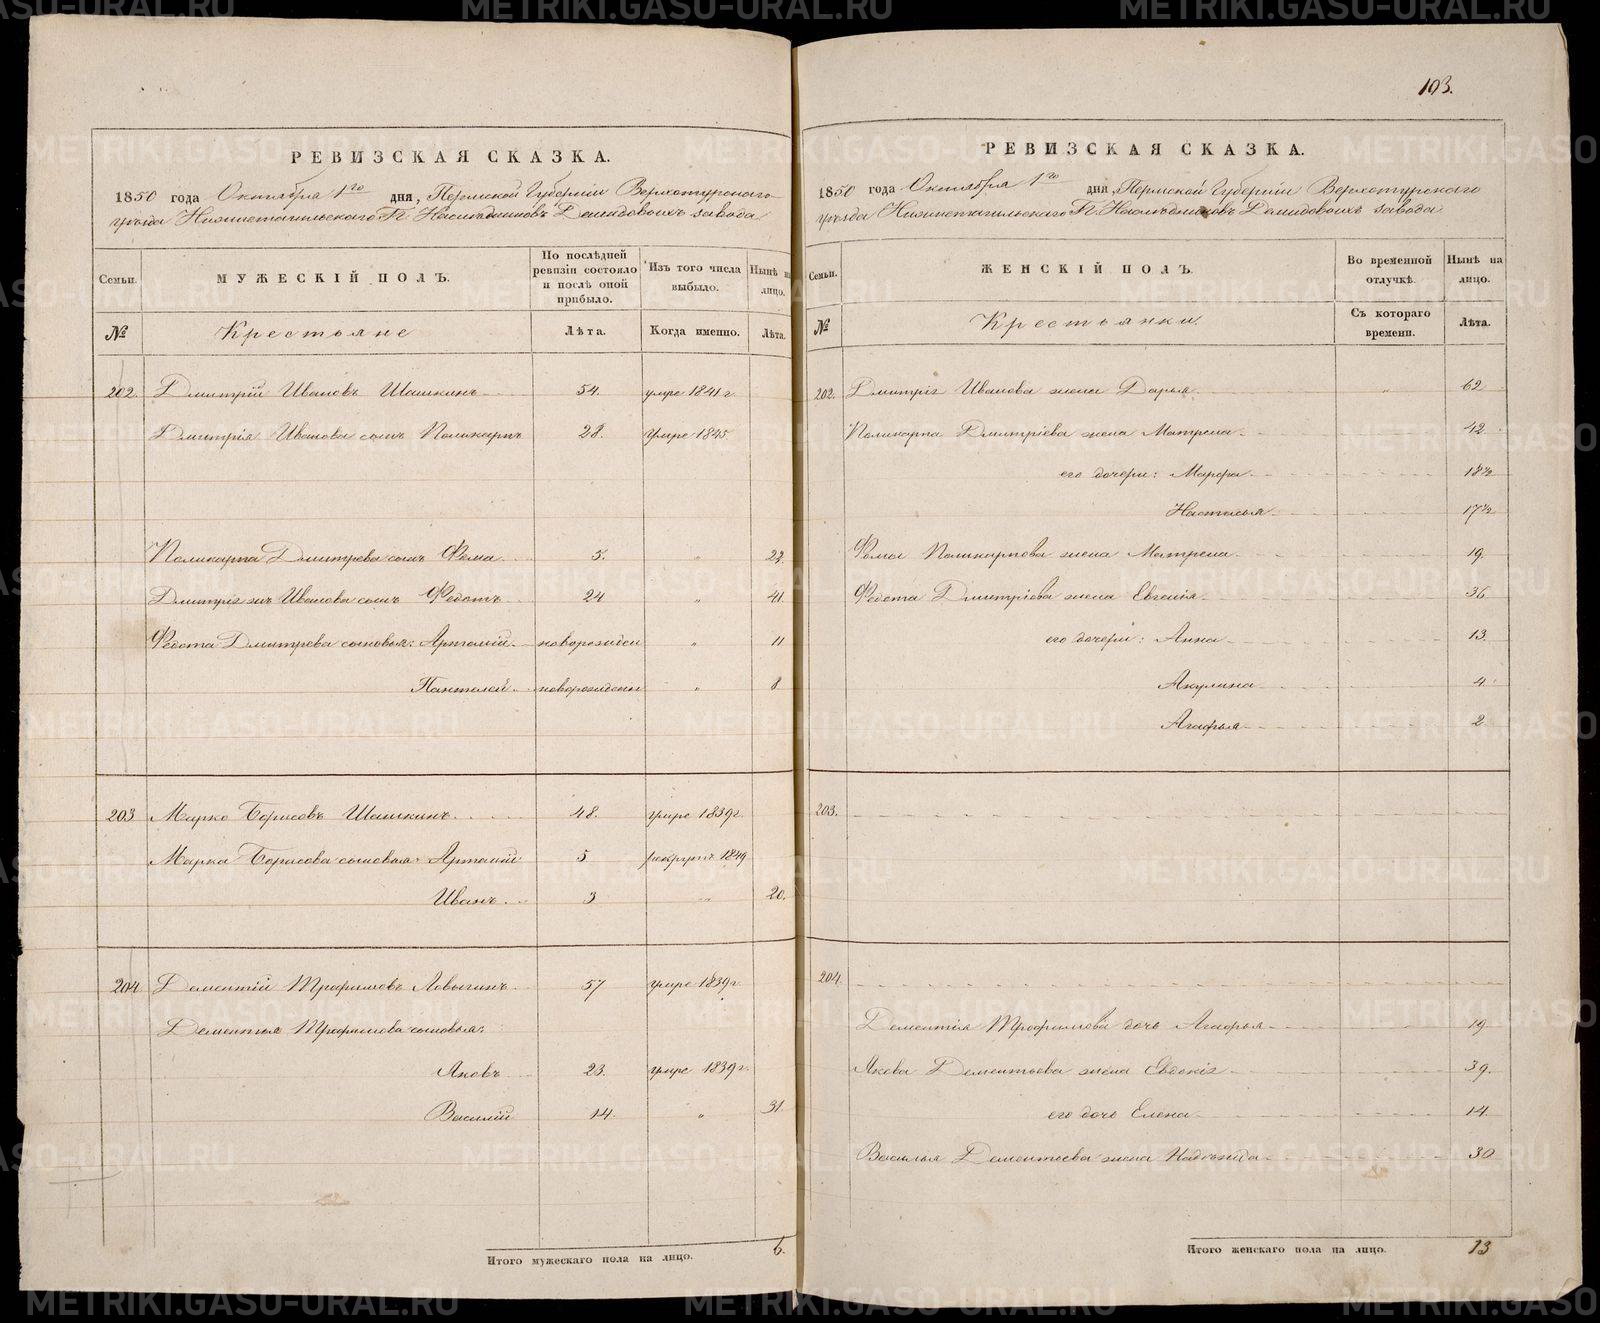 193.
РЕВИЗСКАЯ СКАЗКА.
1850 года Октября 1го дня, Пермской Губернии Верхотурскаго
уѣзда Нижнетагильскаго Г.г. Наслѣдниковъ Демидовыхъ завода
Семьи. МУЖЕСКІЙ ПОЛЪ. По послѣдней ревизіи состояло и послѣ оной прибыло. Изъ того числа выбыло. Нынѣ на лицо.
№ Крестьяне Лѣта. Когда именно. Лѣта.
202. Дмитрій Ивановъ Шашкинъ 54. умре 1841 г.
Дмитрія Иванова сынъ Поликарпъ 28. Умре 1845
Поликарпа Дмитрева сынъ Фома 5. " 22.
Дмитрія жъ Иванова сынъ Федотъ 24 " 41.
Федота Дмитрева сыновья: Артемій новорожден " 11
Пантелей новорожденъ " 8
203 Марко Борисовъ Шашкинъ 48. умре 1839 г.
Марка Борисова сыновья: Артемій 5 рекрутъ 1849
Иванъ 3 " 20.
204 Дементій Трофимовъ Ловыгинъ 57 умре 1839 г.
Дементья Трофимова сыновья:
Яковъ 23. умре 1839 г.
Василій 14. " 31.
Итого мужескаго пола на лицо. 6.
РЕВИЗСКАЯ СКАЗКА.
1850 года Октября 1го дня, Пермской Губерніи Верхотурскаго
уѣзда Нижнетагильскаго Г.г. Наслѣдниковъ Демидовыхъ завода
Семьи. ЖЕНСКІЙ ПОЛЪ. Во временной отлучкѣ. Нынѣ на лицо.
№ Крестьянки. Съ котораго времени. Лѣта.
202. Дмитрія Иванова жена Дарья " 62
Поликарпа Дмитріева жена Матрена 42.
его дочери: Марфа 18½
Настасья 17½
Фомы Поликарпова жена Матрена 19.
Федота Дмитріева жена Евгенія 36.
его дочери: Анна 13.
Акулина 4.
Агафья 2.
203.
204.
Дементія Трофимова дочь Агафья 19.
Якова Дементьева жена Евдокія 39.
его дочь Елена 14.
Василья Дементьева жена Надежда 30
Итого женскаго пола на лицо. 13
METRIKI.GASO-URAL.RU